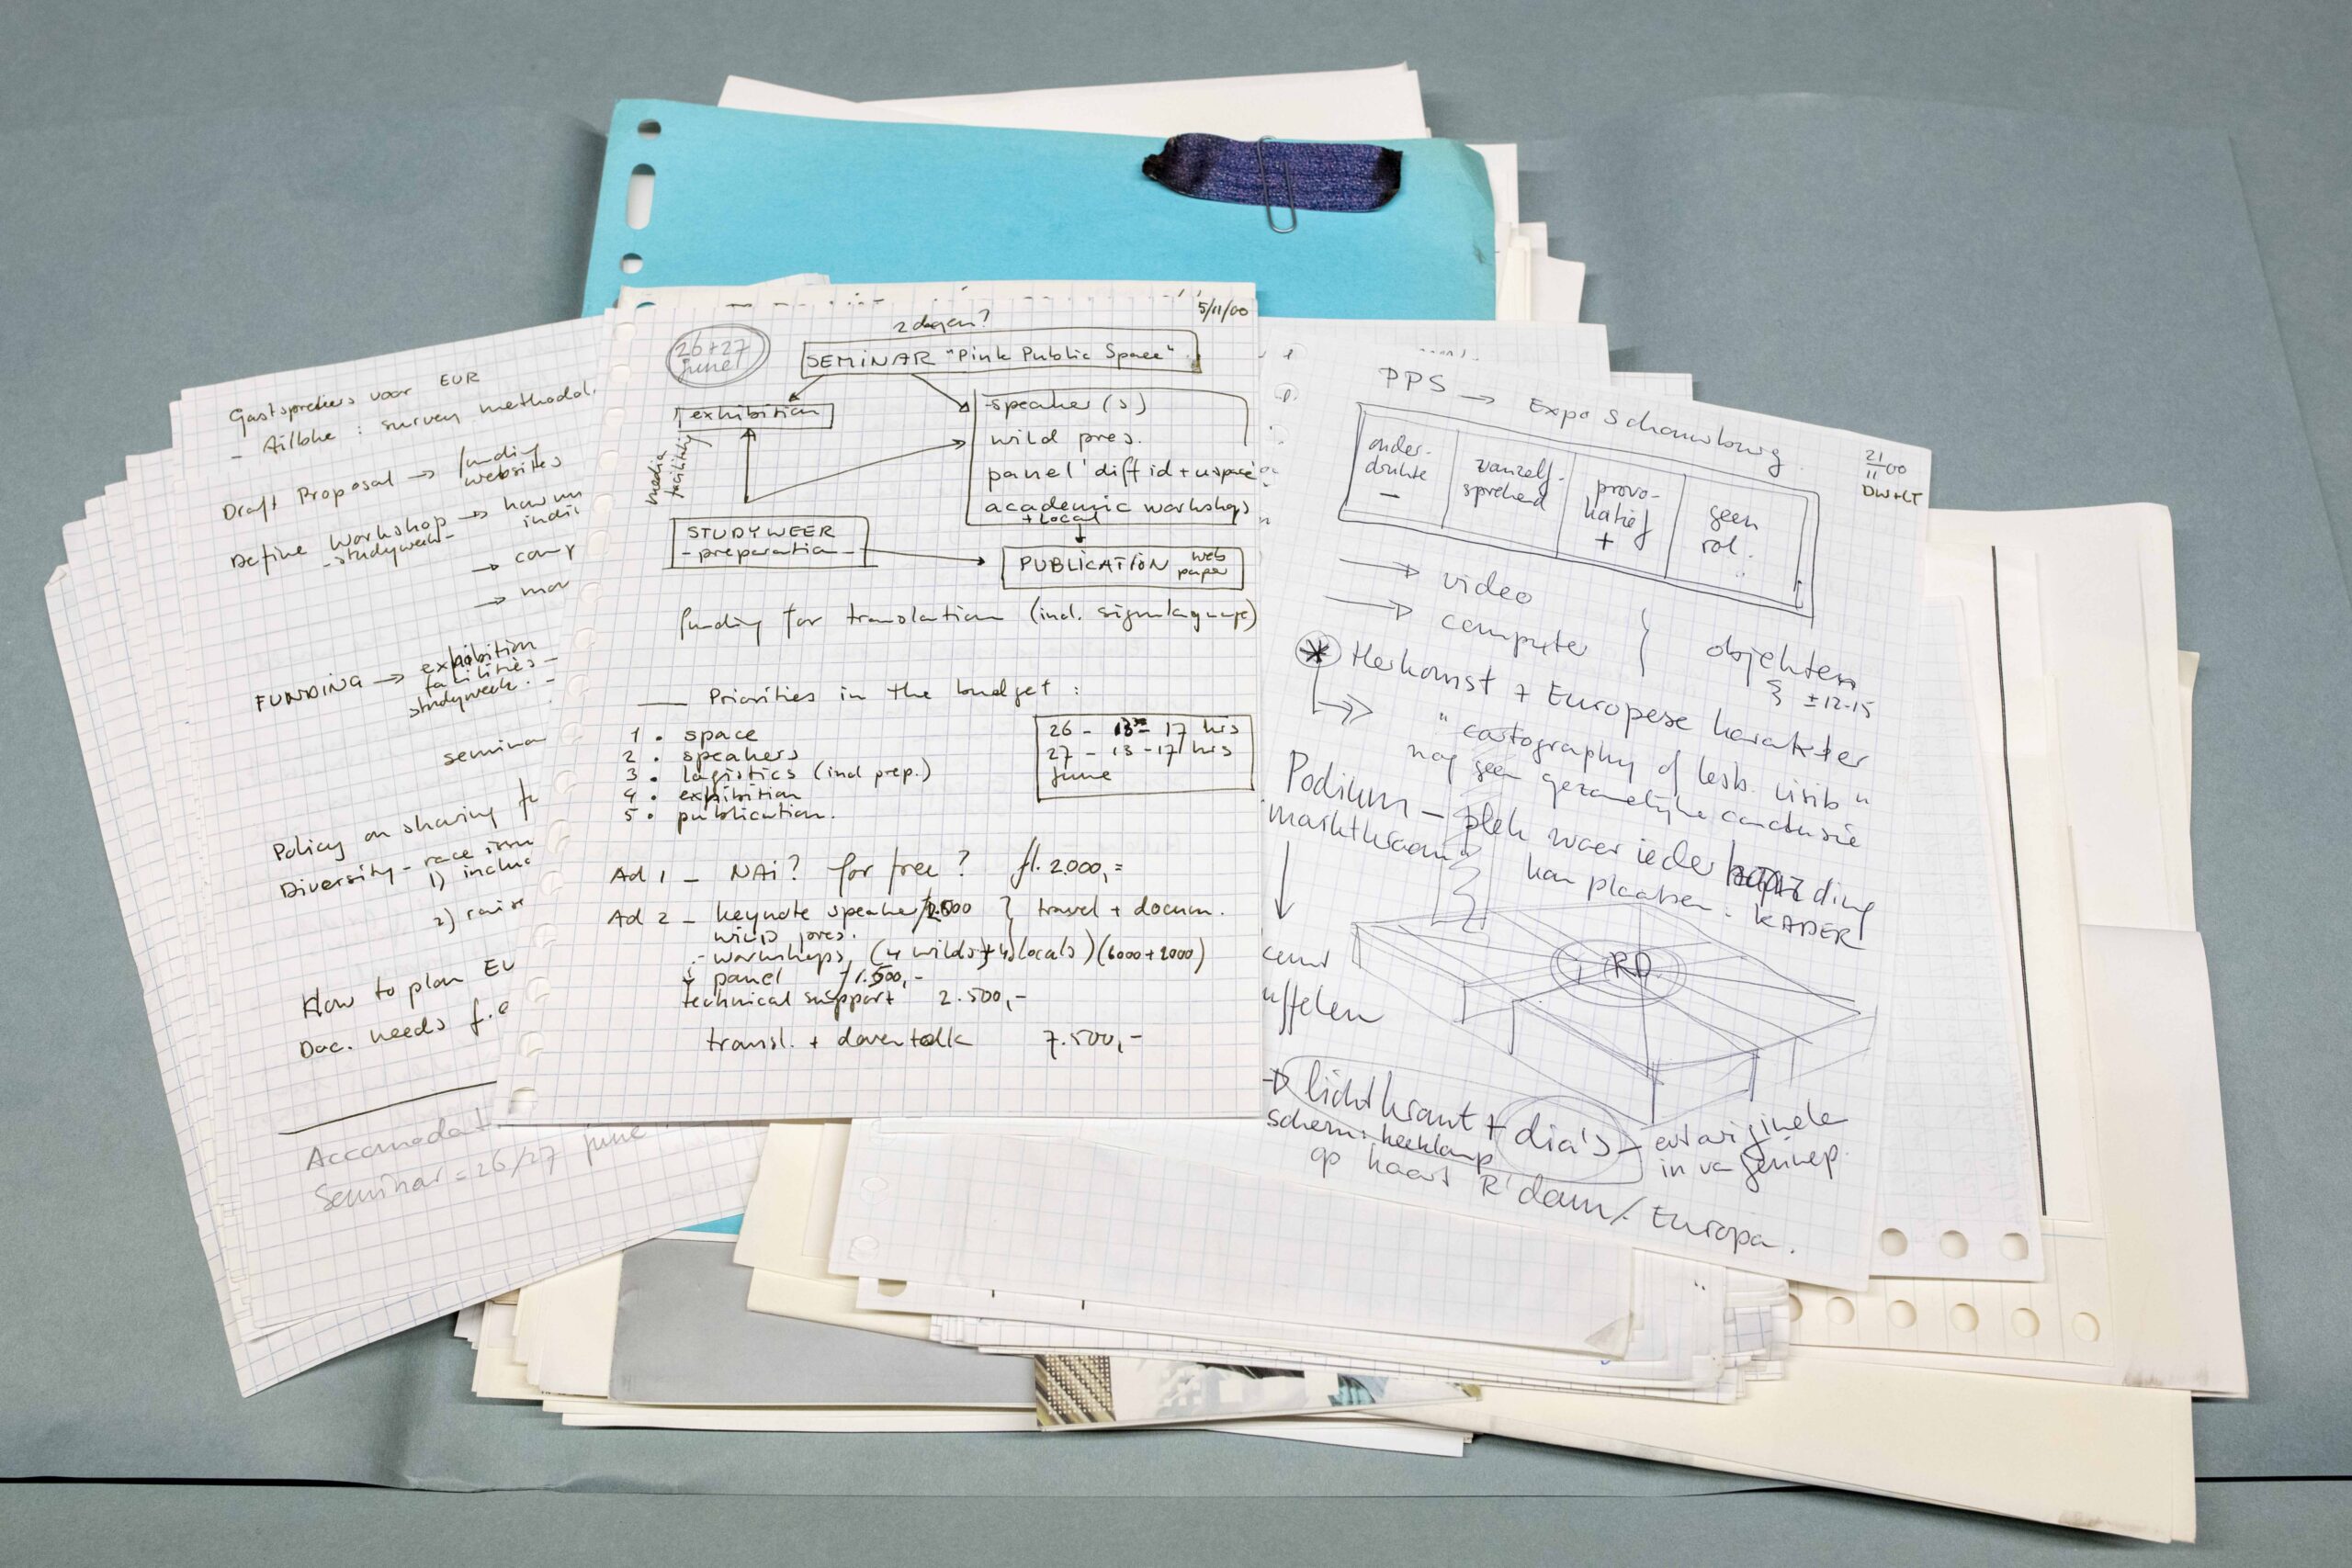 Gastsprekers voor EUR
- Ailbhe : survey methodol.
Draft Proposal → funding
websites
Define Workshop →
- studyweek -
→ comp
→ mor
FUNDING → exhibition
facilities -
studyweek. -
semina
Policy on sharing f
Diversity - race
1) inclu
2) raise
How to plan Ev
Doc. needs f.e
Accomodat
Seminar = 26/27 june
5/11/00
2 dagen?
26+27
june
SEMINAR "Pink Public Space"
exhibition
media
facility
- speaker(s)
wild pres.
panel diff id + u space
academic workshops
+ local
STUDYWEEK
- preparation -
PUBLICATION web
paper
funding for translation (incl. signlanguage)
Priorities in the budget :
1. space
2. speakers
3. logistics (incl prep.)
4. exhibition
5. publication.
26 - 13 - 17 hrs
27 - 13 - 17 hrs
june
Ad 1 - NAi? for free? fl. 2.000,=
Ad 2 - keynote speaker } travel + docum.
WILD pres.
- workshops (4 wilds + 4 locals) (6000 + 2000)
panel 1.500,-
technical support 2.500,-
transl. + doventolk 7.500,-
PPS → Expo Schouwburg
21/11 00
DW+LT
onder-
drukte
-
vanzelf-
sprekend
provo-
katief
+
geen
rol.
→ video
→ computer } objekten
± 12-15
* Herkomst + Europese karakter
→ "cartography of lesb. visib"
nog geen gezamelijke conclusie
Podium - plek waar ieder ding
"marktkraam" kan plaatsen. KADER
R'D.
uffelen
→ lichtkrant + dia's -
scherm op kaart R'dam / Europa.